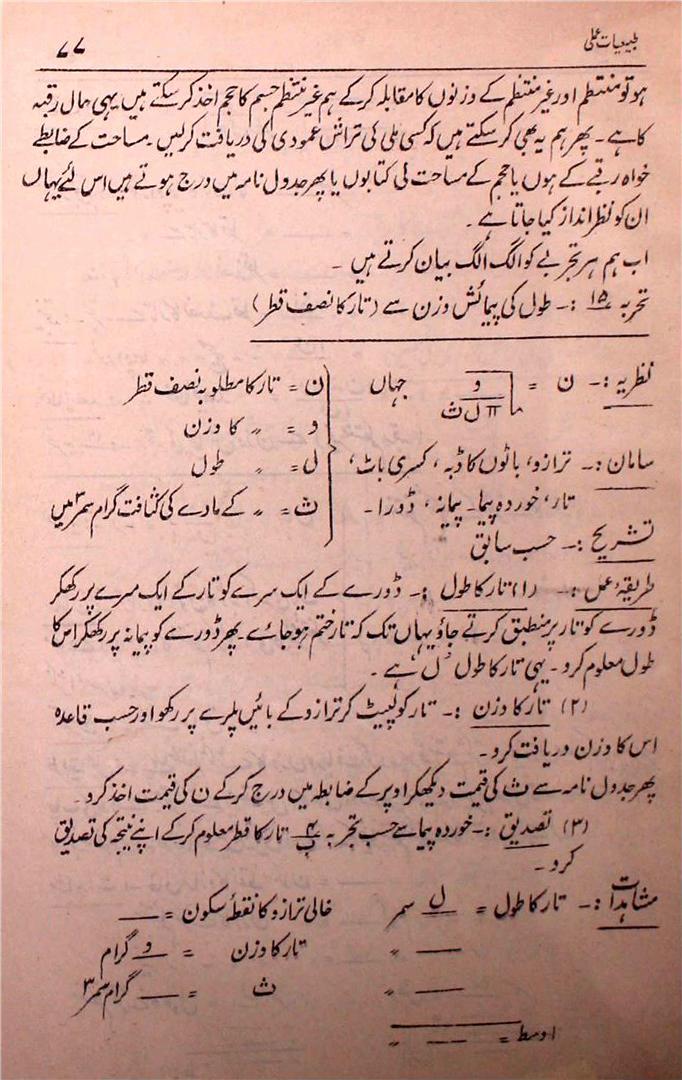 طبیعیات عملی
۷۷
ہو تو منتظم اور غیر منتظم کے وزنوں کا مقابلہ کرکے ہم غیر منتظم جسم کا حجم اخذ کر سکتے ہیں یہی حال رقبہ
کا ہے ۔ پھر ہم یہ بھی کر سکتے ہیں کہ کسی نلی کی تراش عمودی کی دریافت کرلیں ۔ مساحت کے ضابطے
خواہ رقبے کے ہوں یا حجم کے مساحت کی کتابوں یا پھر جدول نامہ میں درج ہوتے ہیں اس لئے یہاں
ان کو نظر انداز کیا جاتا ہے ۔
اب ہم ہر تجربے کو الگ الگ بیان کرتے ہیں ۔
تجربہ ۱۵ :۔ طول کی پیمائش وزن سے (تار کا نصف قطر)
نظریہ :۔ ن = √(و / π ل ث) جہاں
ن = تار کا مطلوبہ نصف قطر
و = 〃 کا وزن
ل = 〃 طول
ث = 〃 کے مادے کی کثافت گرام سمر۳ میں
سامان :۔ ترازو، باٹوں کا ڈبہ، کسری باٹ،
تار، خوردہ پیما۔ پیمانہ، ڈورا۔
تشریح :۔ حسب سابق
طریقۂ عمل :۔ (۱) تار کا طول :۔ ڈورے کے ایک سرے کو تار کے ایک سرے پر رکھکر
ڈورے کو تار پر منطبق کرتے جاؤ یہاں تک کہ تار ختم ہو جائے۔ پھر ڈورے کو پیمانہ پر رکھکر اس کا
طول معلوم کرو ۔ یہی تار کا طول ل ہے ۔
(۲) تار کا وزن :۔ تار کو لپیٹ کر ترازو کے بائیں پلڑے پر رکھو اور حسب قاعدہ
اس کا وزن دریافت کرو۔
پھر جدول نامہ سے ث کی قیمت دیکھکر اوپر کے ضابطہ میں درج کرکے ن کی قیمت اخذ کرو۔
(۳) تصدیق :۔ خوردہ پیما سے حسب تجربہ ۴ ب تار کا قطر معلوم کرکے اپنے نتیجہ کی تصدیق
کرو۔
مشاہدات :۔ تار کا طول = ل سمر
— 〃
— 〃
اوسط = — 〃
خالی ترازو کا نقطۂ سکون = —
تار کا وزن = و گرام
ث = — گرام سمر۳